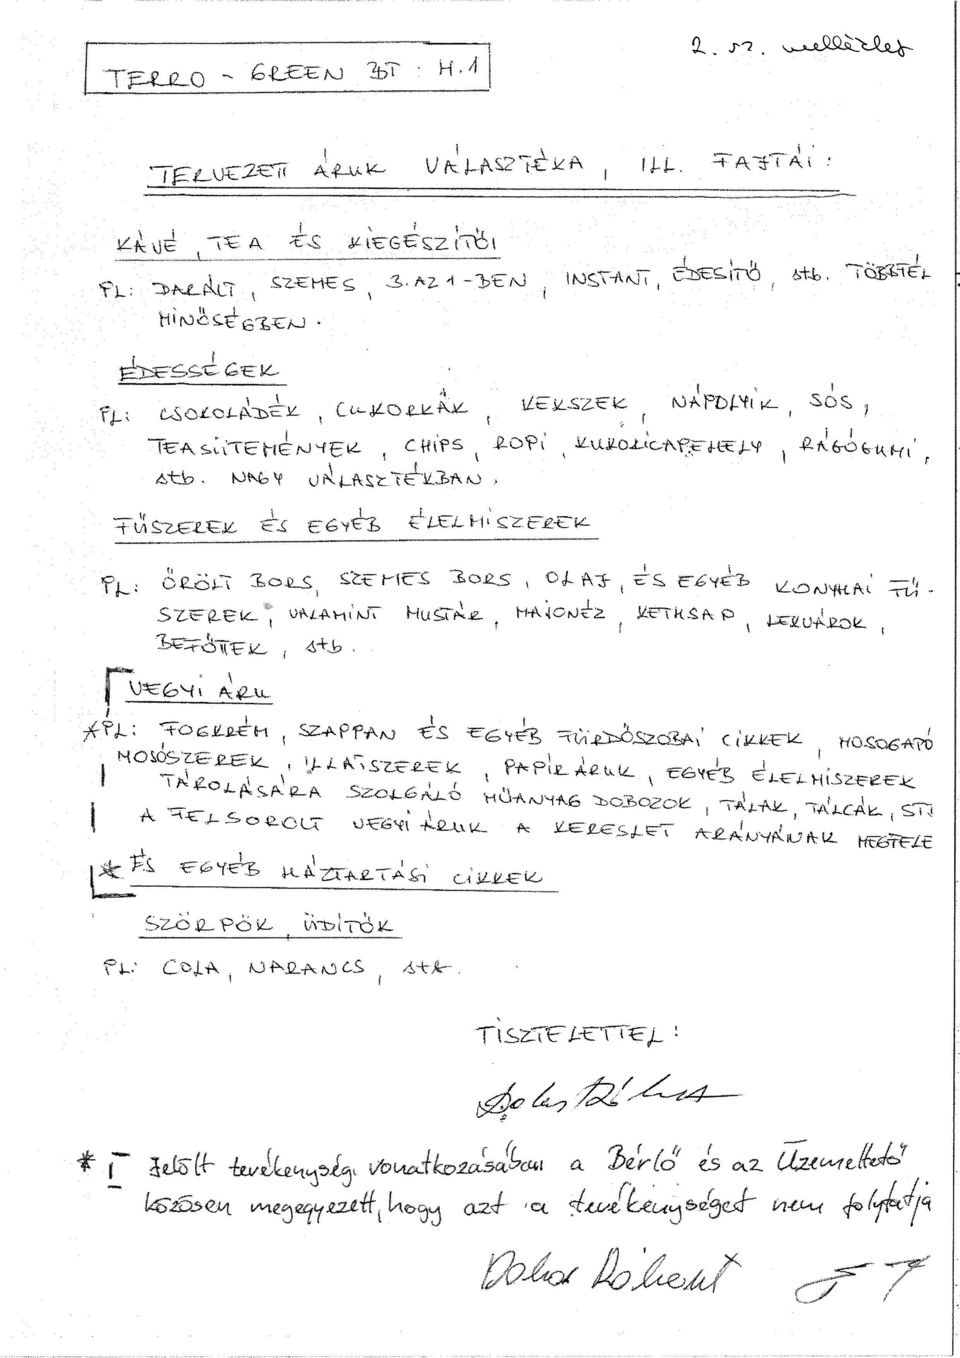 2. sz. melléklet
TERRO - GREEN BT : H.1
TERVEZETT ÁRUK VÁLASZTÉKA, ILL. FAJTÁI :
KÁVÉ, TEA ÉS KIEGÉSZÍTŐI
PL: DARÁLT, SZEMES, 3.AZ 1-BEN, INSTANT, ÉDESÍTŐ, stb. TÖBBFÉL
MINŐSÉGBEN.
ÉDESSÉGEK
PL: CSOKOLÁDÉK, CUKORKÁK, KEKSZEK, NÁPOLYIK, SÓS,
TEASÜTEMÉNYEK, CHIPS, ROPI, KUKORICAPEHELY, RÁGÓGUMI,
stb. NAGY VÁLASZTÉKBAN.
FŰSZEREK ÉS EGYÉB ÉLELMISZEREK
PL: ŐRÖLT BORS, SZEMES BORS, OLAJ, ÉS EGYÉB KONYHAI FŰ-
SZEREK, VALAMINT MUSTÁR, MAJONÉZ, KETHSAP, LEKVÁROK,
BEFŐTTEK, stb.
VEGYI ÁRU
* PL: FOGKRÉM, SZAPPAN ÉS EGYÉB FÜRDŐSZOBAI CIKKEK, MOSOGATÓ
MOSÓSZEREK, ILLATSZEREK, PAPÍRÁRUK, EGYÉB ÉLELMISZEREK
TÁROLÁSÁRA SZOLGÁLÓ MŰANYAG DOBOZOK, TÁLAK, TÁLCÁK, STB
A FELSOROLT VEGYI ÁRUK A KERESLET ARÁNYÁNAK MEGFELE
* ÉS EGYÉB HÁZTARTÁSI CIKKEK
SZÖRPÖK, ÜDÍTŐK
PL: COLA, NARANCS, stb.
TISZTELETTEL :
* I Jelölt tevékenység vonatkozásában a Bérlő és az Üzemeltető
közösen megegyezett, hogy azt a tevékenységet nem folytatja